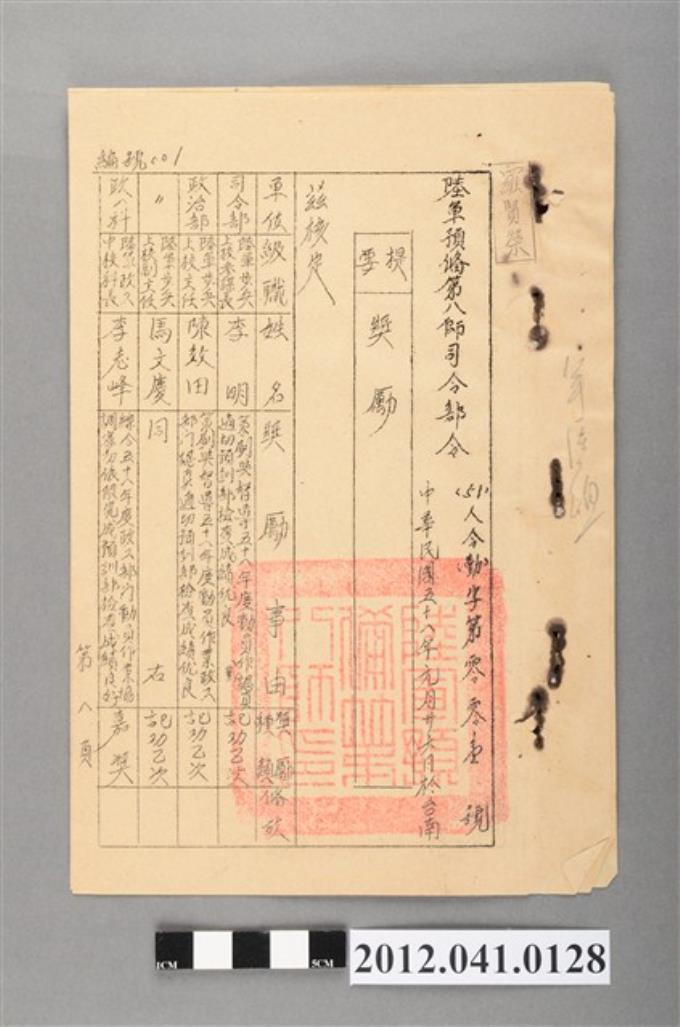 羅賢榮
陸軍預備第八師司令部令
人令(勤)字第零零壹號
中華民國五十八年元月廿六日於台南
提要
獎勵
茲核定
編號
單位
級職
姓名
獎勵事由
獎勵種類
備攷
司令部
陸軍步兵上校參謀長
李明
策劃與督導五十八年度動員作業適切預訓部檢查成績優良
記功乙次
政治部
陸軍步兵上校主任
陳效田
策劃與督導五十八年度動員作業政久部門認真適切預訓部檢查成績优良
記功乙次
〃
陸軍步兵上校副主任
馮文慶
同右
記功乙次
政八科
中校科長
李志峰
嘉獎
第八頁
1CM
5CM
2012.041.0128